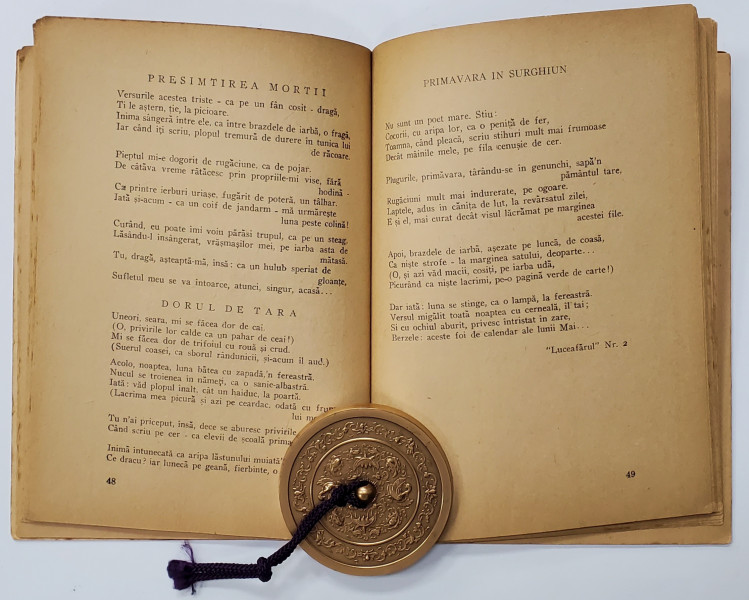 PRESIMTIREA MORTII
Versurile acestea triste - ca pe un fân cosit - dragă,
Ti le aștern, ție, la picioare.
Inima sângeră intre ele, ca între brazdele de iarbă, o fragă,
Iar când iți scriu, plopul tremură de durere in tunica lui
de răcoare.
Pieptul mi-e dogorit de rugăciune, ca de pojar.
De câtăva vreme rătăcesc prin propriile-mi vise, fără
hodină -
Ca printre ierburi uriașe, fugărit de poteră, un tâlhar.
Iată și-acum - ca un coif de jandarm - mă urmărește
luna peste colină!
Curând, eu poate imi voiu părăsi trupul, ca pe un steag.
Lăsându-l insângerat, vrășmașilor mei, pe iarba asta de
mătasă.
Tu, dragă, așteaptă-mă, insă: ca un hulub speriat de
gloanțe,
Sufletul meu se va intoarce, atunci, singur, acasă...
DORUL DE TARA
Uneori, seara, mi se făcea dor de cai.
(O, privirile lor calde ca un pahar de ceai!)
Mi se făcea dor de trifoiul cu rouă și crud.
(Suerul coasei, ca sborul rândunicii, și-acum il aud.)
Acolo, noaptea, luna bătea cu zapadă,'n fereastră.
Nucul se troienea in nămeți, ca o sanie-albastră.
Iată: văd plopul inalt, cât un haiduc, la poartă.
(Lacrima mea picură și azi pe ceardac, odată cu frun
lui
Tu n'ai priceput, insă, dece se aburesc privirile
Când scriu pe cer - ca elevii de școală
Inimă intunecată ca aripa lăstunului muiată
Ce dracu? iar lunecă pe geană, fierbinte, o
48
PRIMAVARA IN SURGHIUN
Nu sunt un poet mare. Stiu:
Cocorii, cu aripa lor, ca o peniță de fer,
Toamna, când pleacă, scriu stihuri mult mai frumoase
Decât mâinile mele, pe fila cenușie de cer.
Plugurile, primăvara, târându-se in genunchi, sapă'n
pământul tare,
Rugăciuni mult mai indurerate, pe ogoare.
Laptele, adus in cănița de lut, la revărsatul zilei,
E și el, mai curat decât visul lăcrămat pe marginea
acestei file.
Apoi, brazdele de iarbă, așezate pe luncă, de coasă,
Ca niște strofe - la marginea satului, deoparte...
(O, și azi văd macii, cosiți, pe iarba udă,
Picurând ca niște lacrimi, pe-o pagină verde de carte!)
Dar iată: luna se stinge, ca o lampă, la fereastră.
Versul migălit toată noaptea cu cerneală, il tai;
Si cu ochiul aburit, privesc intristat in zare,
Berzele: aceste foi de calendar ale lunii Mai...
"Luceafărul" Nr. 2
49